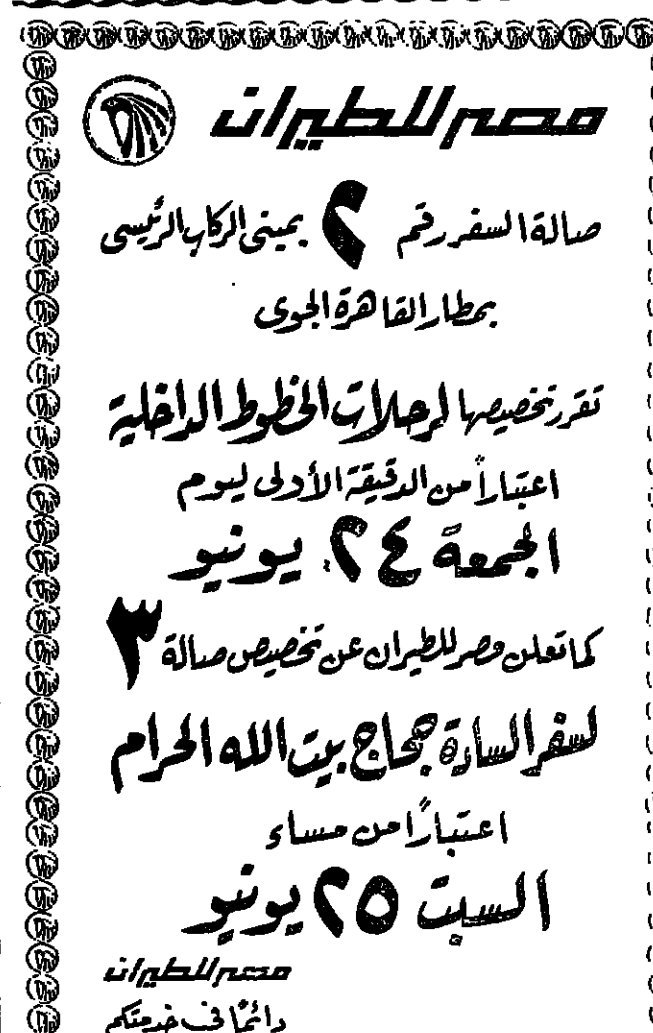 مصر للطيران
صالة السفر رقم ٢ بمبنى الركاب الرئيسى
بمطار القاهرة الجوى
تقرر تخصيصها لرحلات الخطوط الداخلية
اعتباراً من الدقيقة الأولى ليوم
الجمعة ٢٤ يونيو
كما تعلن مصر للطيران عن تخصيص صالة ٣
لسفر السادة حجاج بيت الله الحرام
اعتبارًا من مساء
السبت ٢٥ يونيو
مصر للطيران
دائمًا فى خدمتكم